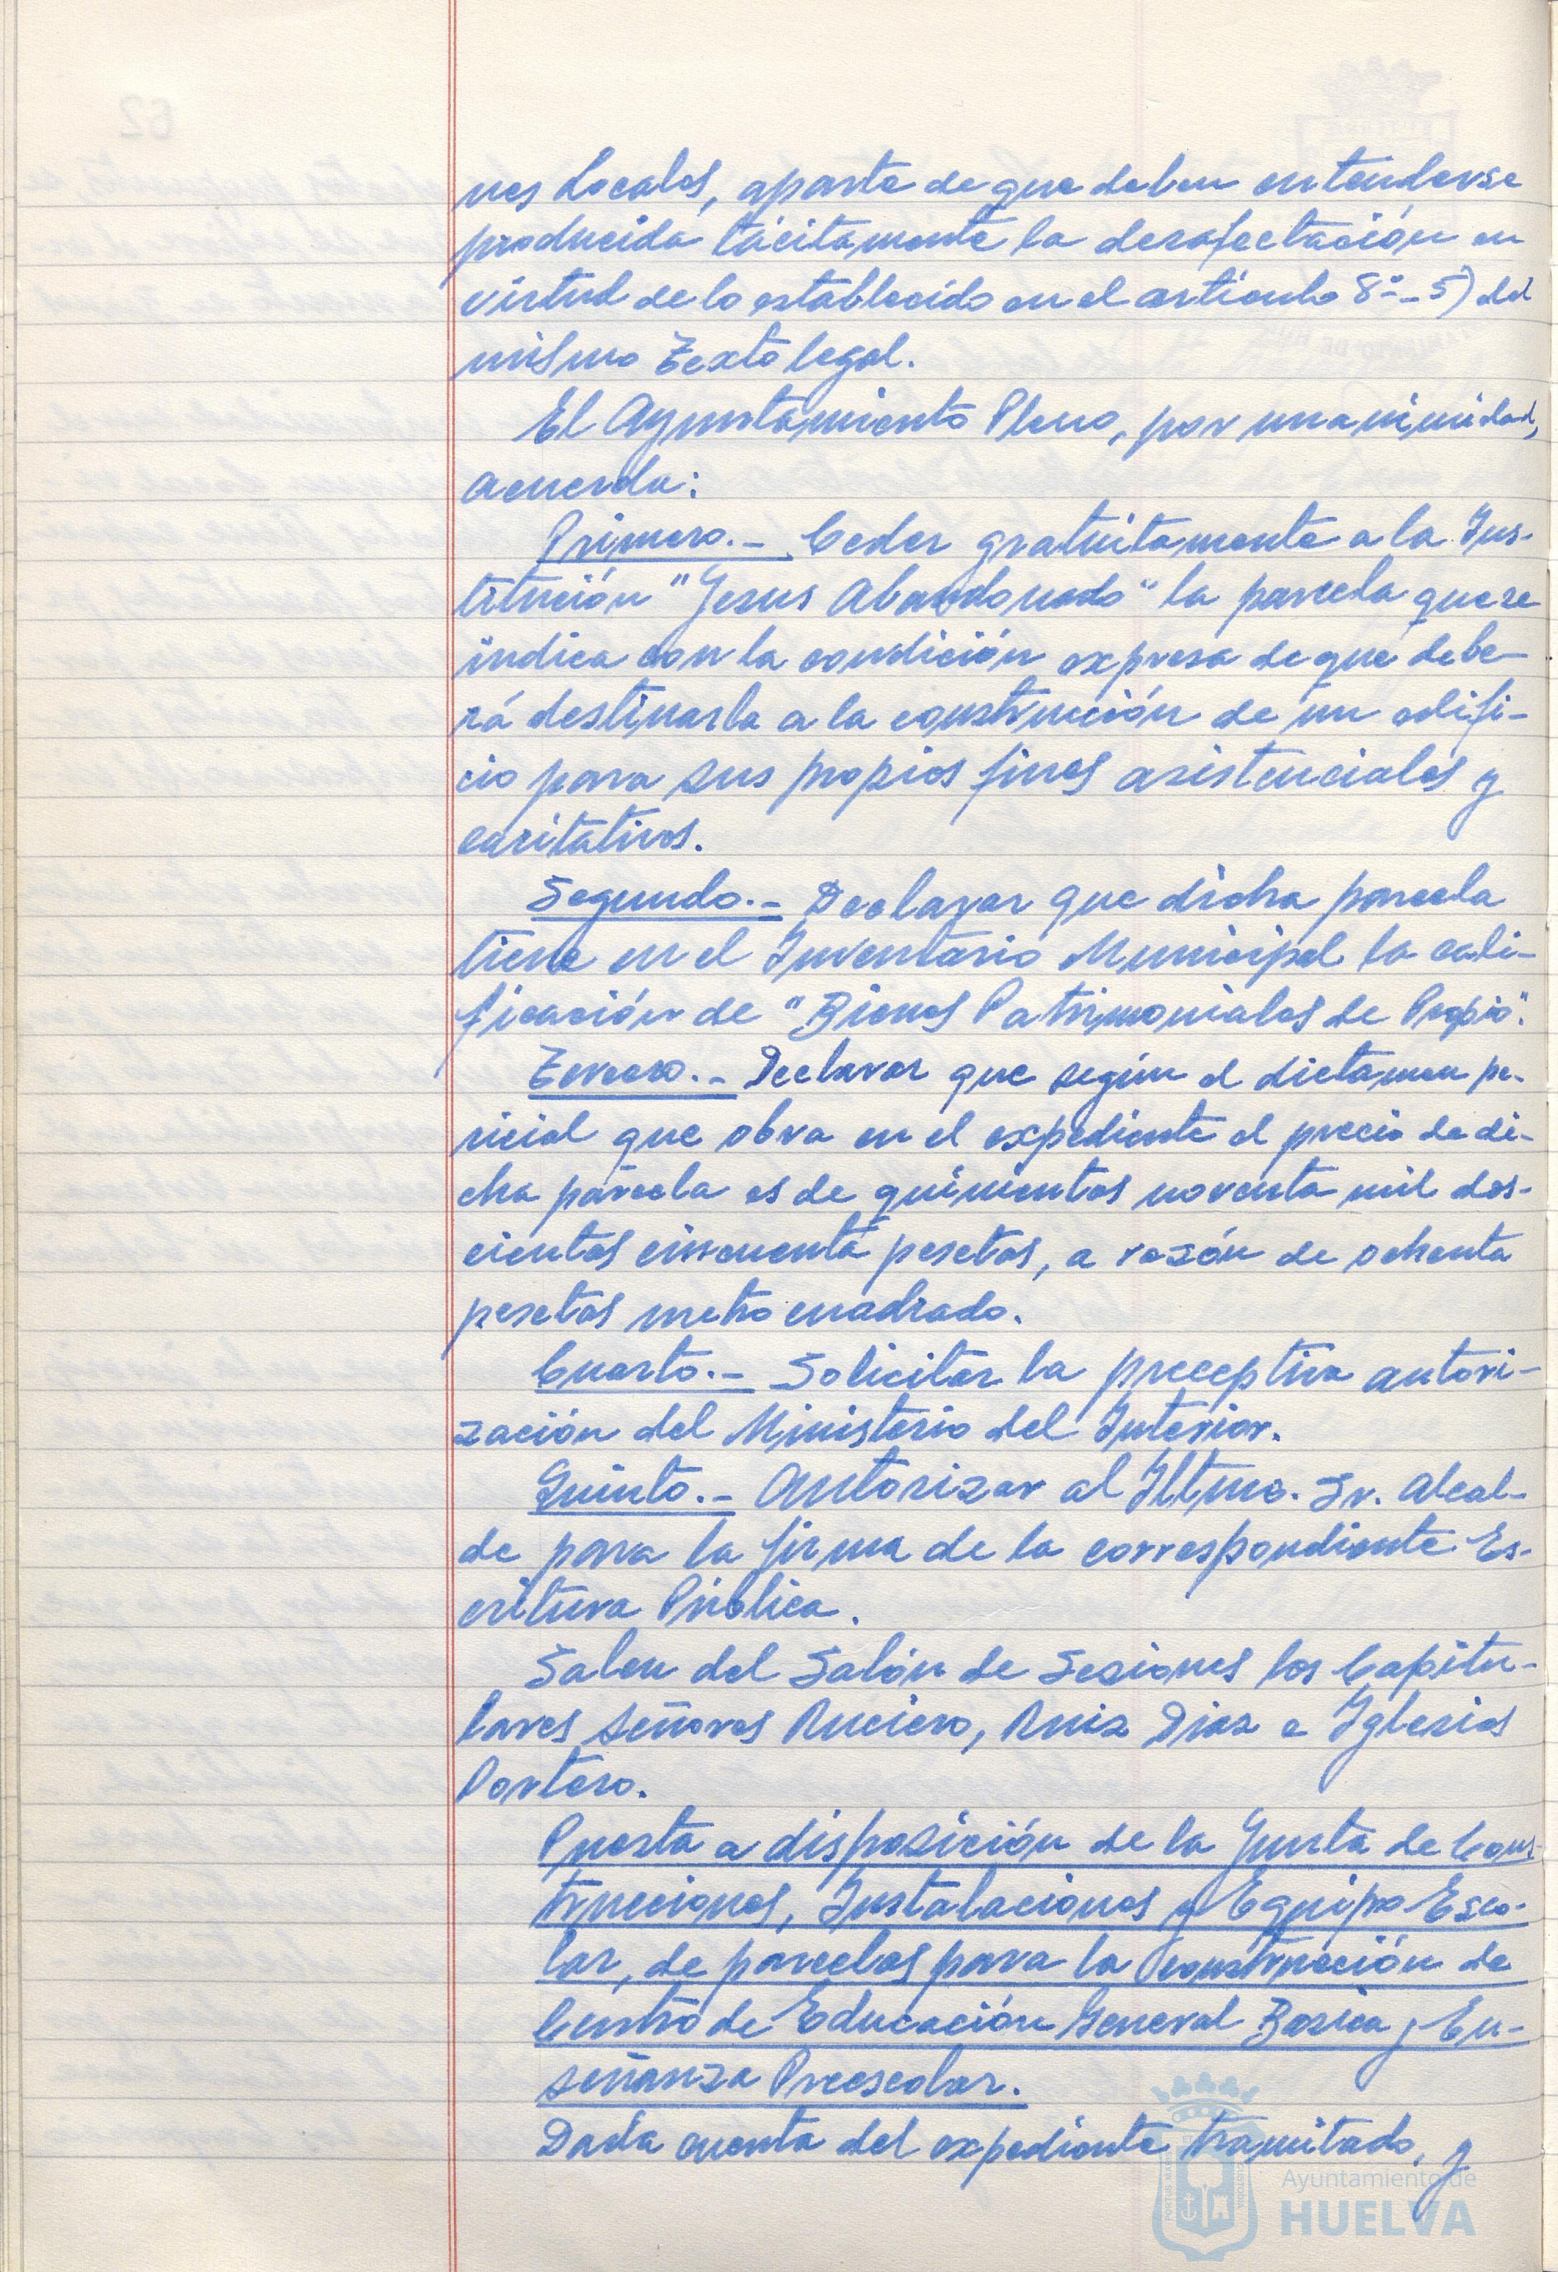 nes Locales, aparte de que deben entenderse
producida tácitamente la desafectación en
virtud de lo establecido en el artículo 8º-5) del
mismo Texto legal.
El Ayuntamiento Pleno, por unanimidad,
acuerda:
Primero.- Ceder gratuitamente a la Ins-
titución "Jesus Abandonado" la parcela que se
indica con la condición expresa de que debe-
rá destinarla a la construcción de un edifi-
cio para sus propios fines asistenciales y
caritativos.
Segundo.- Declarar que dicha parcela
tiene en el Inventario Municipal la cali-
ficación de "Bienes Patrimoniales de Propio".
Tercero.- Declarar que según el dictamen pe-
ricial que obra en el expediente el precio de di-
cha parcela es de quinientos noventa mil dos-
cientos cincuenta pesetas, a razón de ochenta
pesetas metro cuadrado.
Cuarto.- Solicitar la preceptiva autori-
zación del Ministerio del Interior.
Quinto.- Autorizar al Iltmo. Sr. Alcal-
de para la firma de la correspondiente Es-
critura Pública.
Salen del Salón de Sesiones los Capitu-
lares señores Ruciero, Ruiz Diaz e Iglesias
Portero.
Puesta a disposición de la Junta de Cons-
trucciones, Instalaciones y Equipo Esco-
lar, de parcelas para la construcción de
Centro de Educación General Basica y En-
señanza Preescolar.
Dada cuenta del expediente tramitado, y
Ayuntamiento de
HUELVA